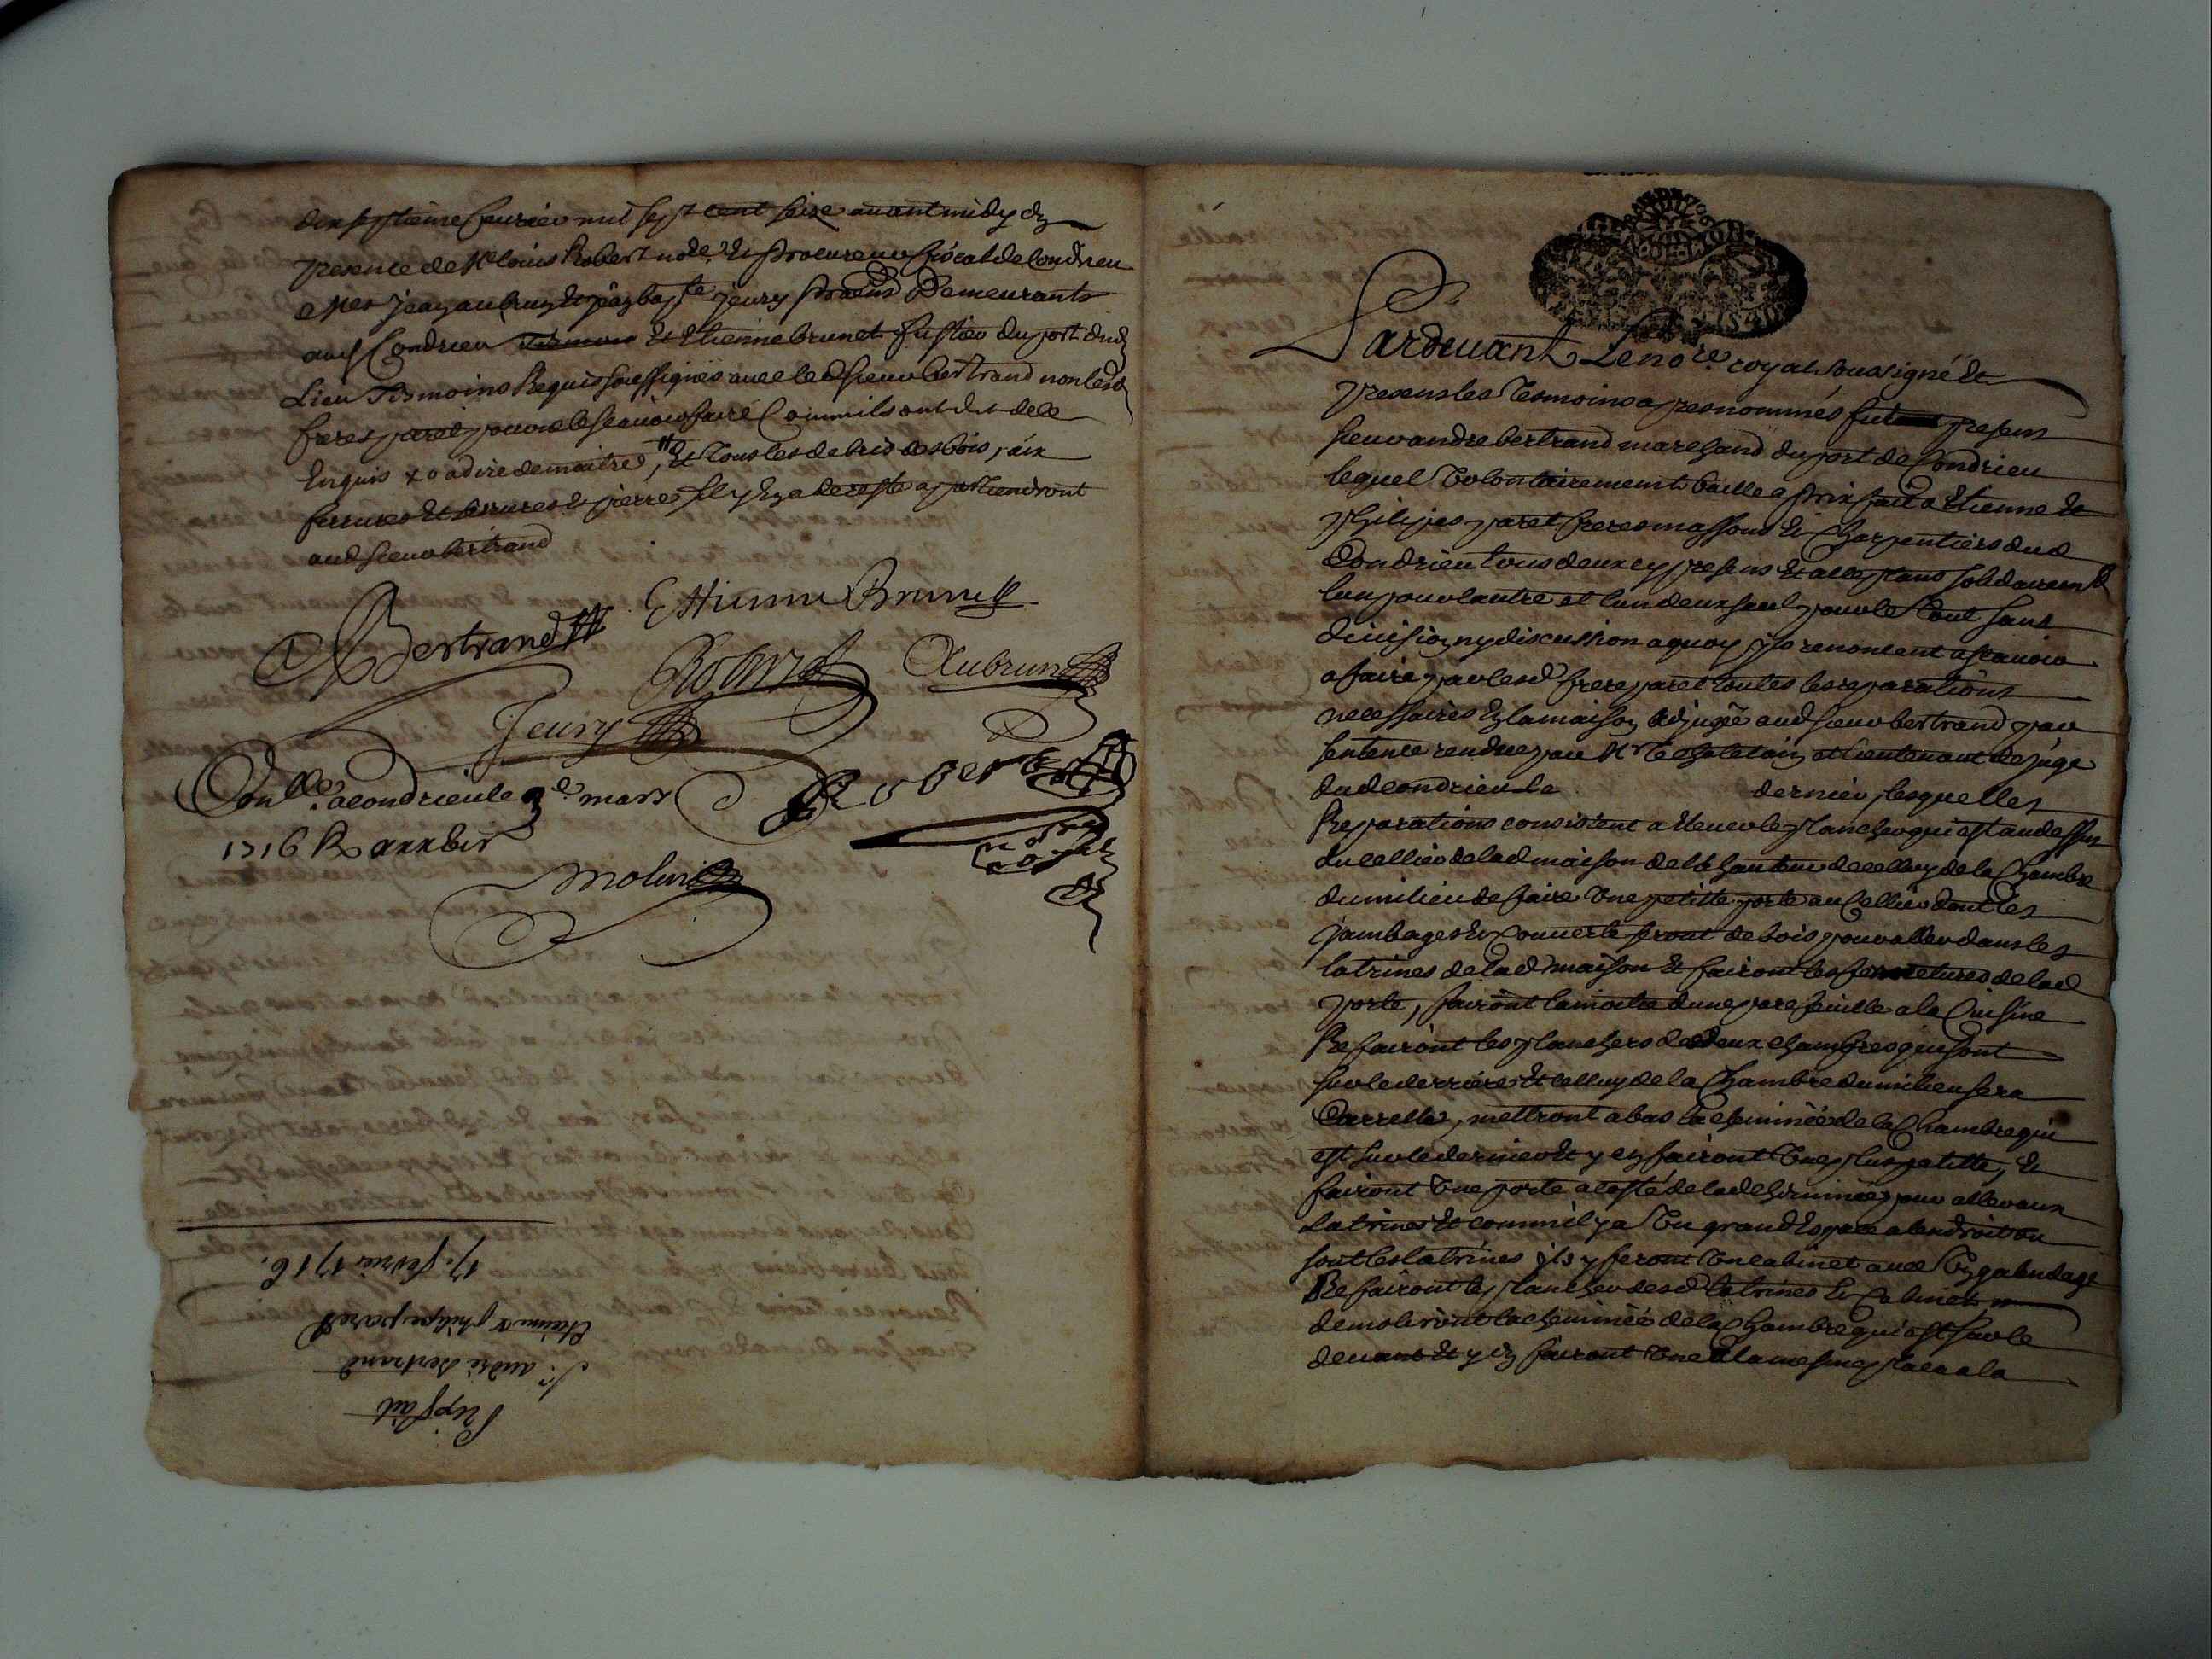 dix septieme feurier mil sept cent seize auant midy en
presence de Me louis Robert node. Et procureur fiscal de Condrieu
et Mes jean aubrun Et jean bapte jeury Demeurants
aud Condrieu Et Etienne brunet fustier du port dud
Lieu Tesmoins Requis soussignés auec led sieur bertrand non lesd
freres paret pour ne le scauoir faire Comm'ils ont dit de ce
Enquis a dire de maitre, Et Tous les debris des bois, aix
ferrures Et serrures Et pierres s'il y En a de reste apartiendront
aud sieur bertrand
ABertrand Ettienne Brunet
Robert Aubrun
Jeury
Conlle. a condrieu le 3e. mars
1716 R
Robert
no.re royal
Molin
17. fevrier 1716.
Etienne & philipe paret
Sr. andré Bertrand
Prixfait
Pardeuant Le nore. royal soussigné Et
Presens les Tesmoins apres nommés fut present
sieur andre bertrand marchand du port de Condrieu
lequel Volontairement baille a prix fait a Etienne Et
philipes paret freres massons Et Charpentiers dud
Condrieu tous deux cy presens Et acceptans solidairemt
lun pour lautre et lun deux seul pour le Tout sans
diuision ny discussion a quoy ils renoncent a scauoir
a faire par lesd freres paret toutes les reparations
necessaires En la maison adjugée aud sieur bertrand par
sentence rendue par Mr le chatelain et lieutenant de juge
dud condrieu le dernier, lesquelles
Reparations consistent a Eleuer le plancher qui est au dessus
du cellier de lad maison de la hauteur de celluy de la Chambre
du milieu de faire Vne petitte porte au Cellier dont les
jambages Et Couuerte seront de bois pour aller dans les
latrines de lad maison Et fairont les fermetures de lad
porte, fairont la moitie dune parefeuille a la Cuisine
Refairont les planchers des deux chambres qui sont
sur le derriere Et celluy de la Chambre du milieu sera
Carrellé, mettront a bas la cheminée de la Chambre qui
est sur le derrier Et y en fairont Vne plus petitte, Et
fairont Vne porte a costé de lad cheminée pour aller aux
Latrines Et comm'il y a Vn grand Espace a lendroit ou
sont les latrines ils y feront Vn cabinet auec Vn galandage
Refairont le plancher desd latrines Et Cabinet
demoliront la cheminée de la Chambre qui est sur le
deuant Et y En fairont Vne a la mesme place a la